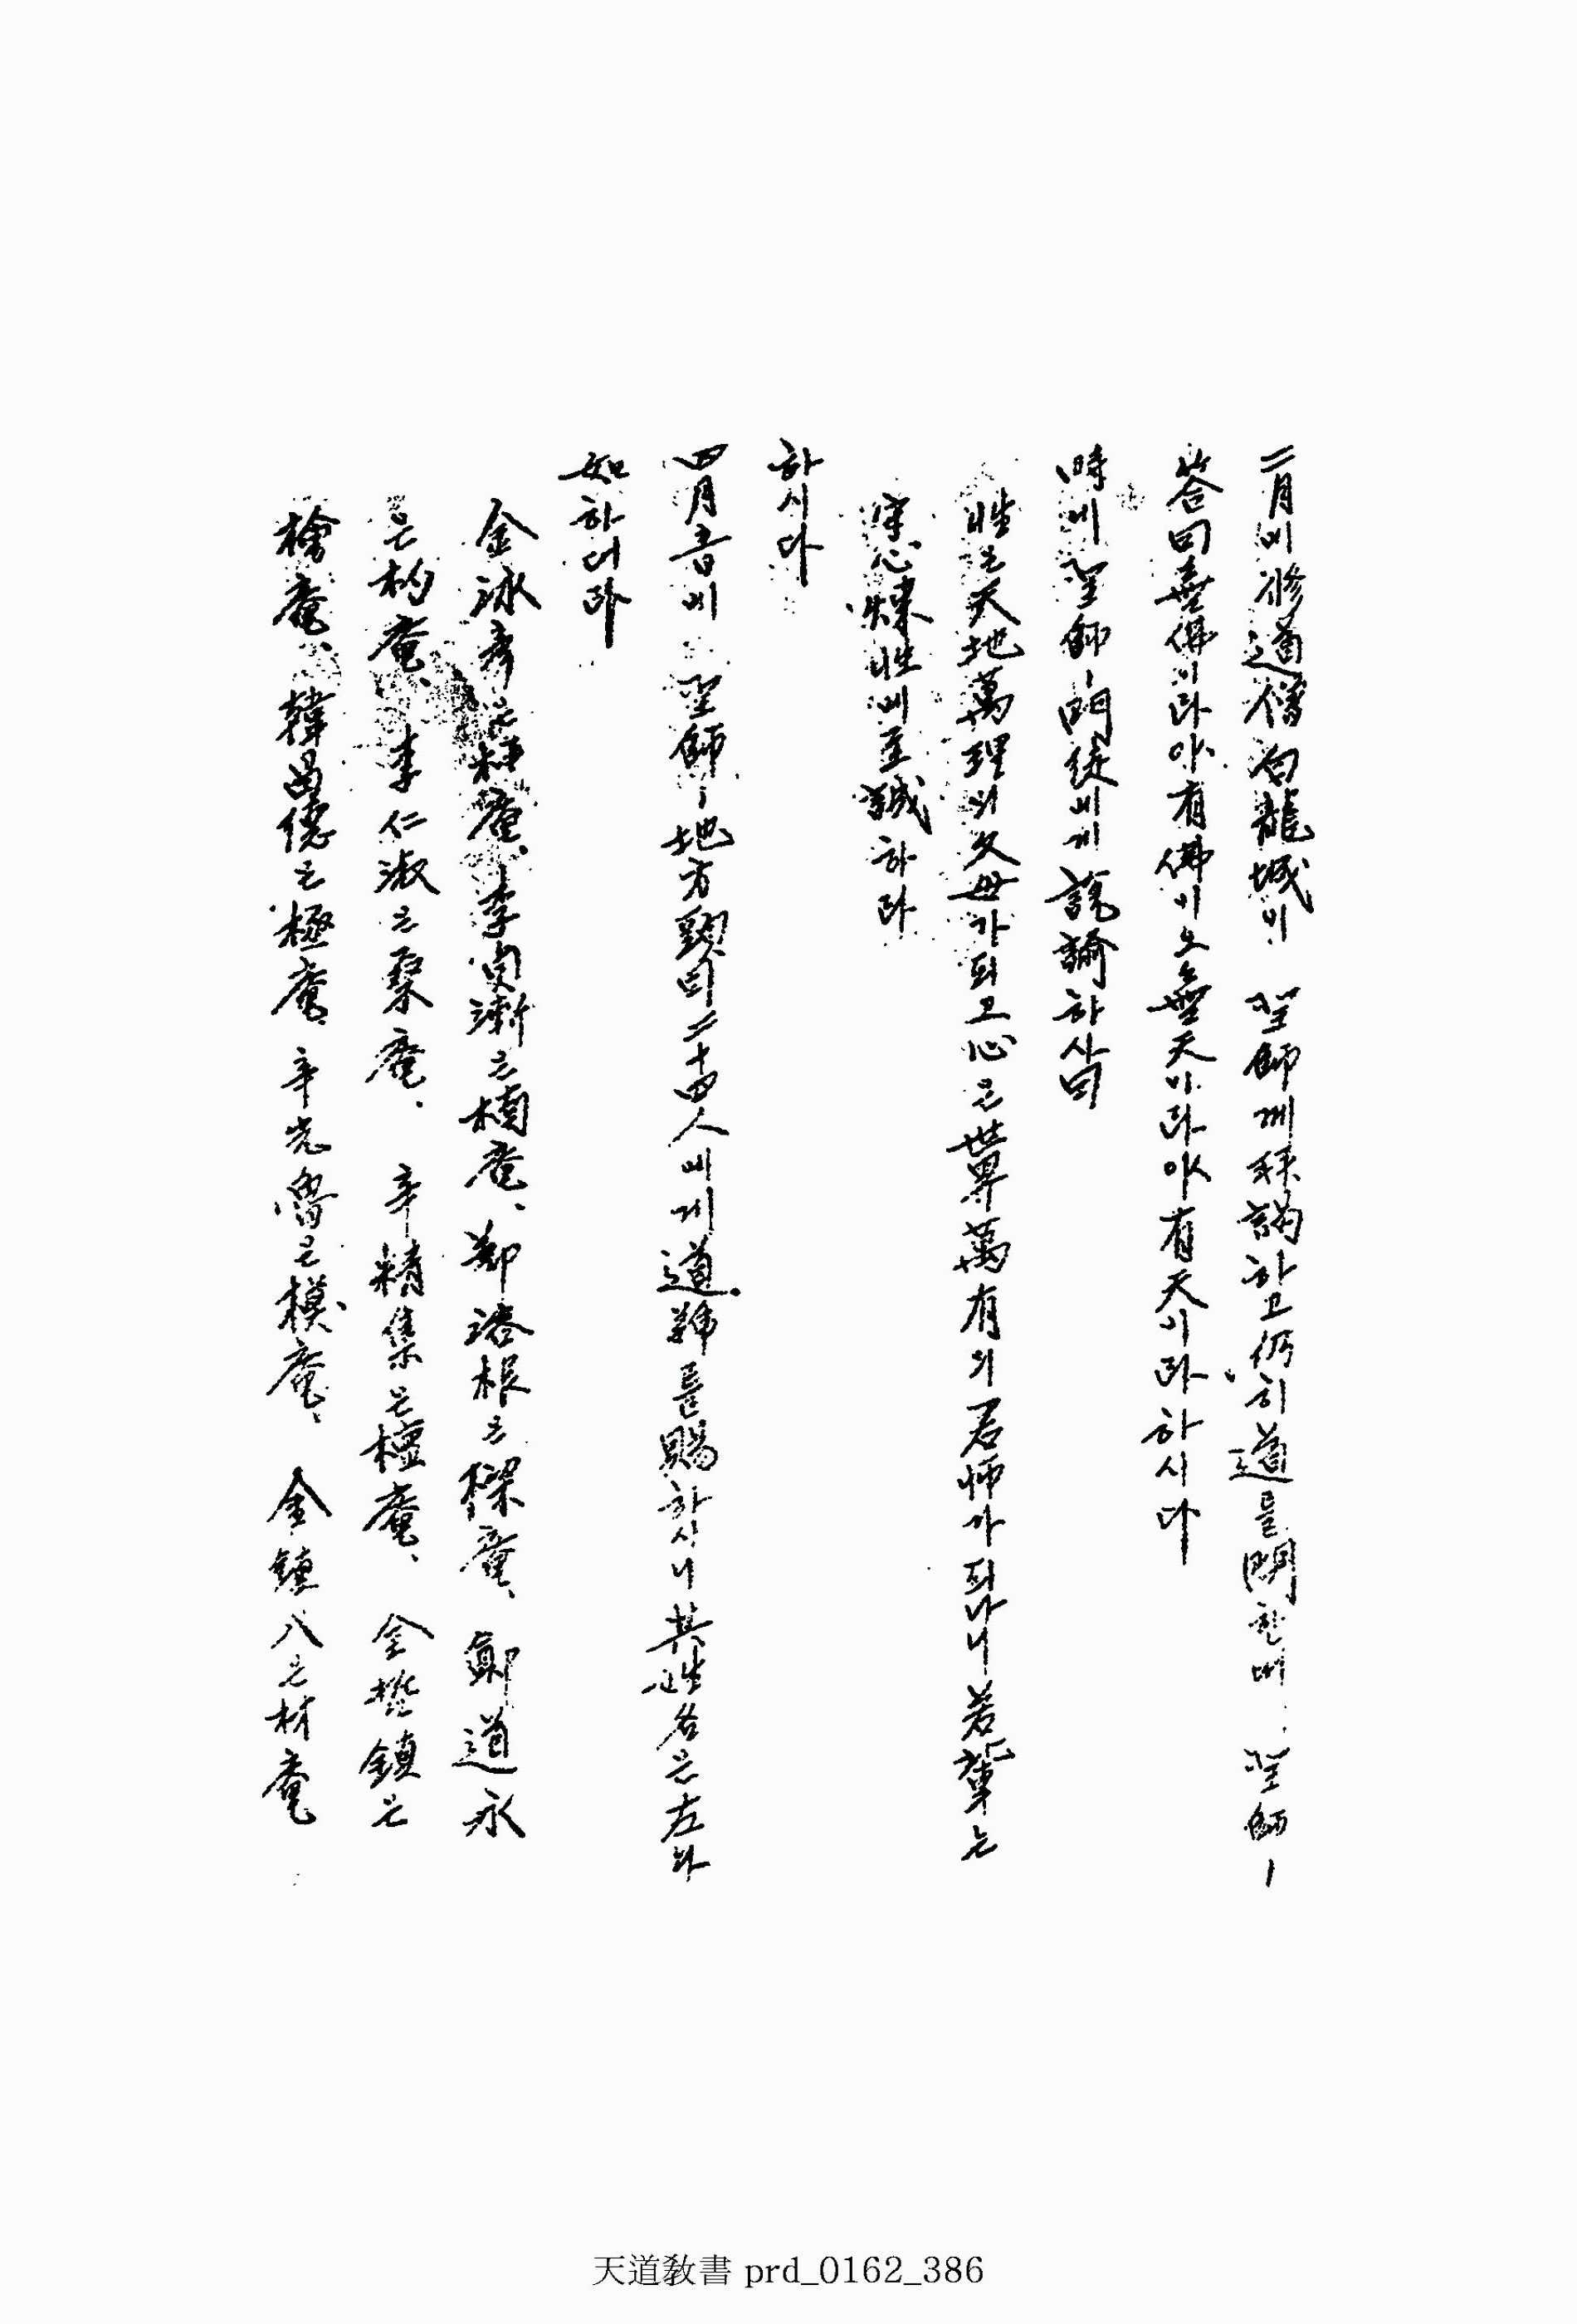 二月에修道僧白龍城이 聖師께拜謁하고仍히道를問한대 聖師ㅣ
答曰無佛이라야有佛이오無天이라야有天이라하시다
時에聖師ㅣ門徒에게說諭하사曰
性은天地萬理의父母가되고心은世界萬有의君師가되나니若輩는
守心煉性에至誠하라
하시다
四月 에 聖師ㅣ地方頭目二十四人에게道號를賜하시니其姓名은左와
如하더라
金泳彦은 菴、李 漸은楠菴、鄭 根은 菴、鄭道永
은杓菴、李仁淑은 菴、辛精集은檀菴、金 鎭은
檜菴、韓昌德은極菴、辛光魯은模菴、金鍾八은材菴
天道敎書 prd_0162_386